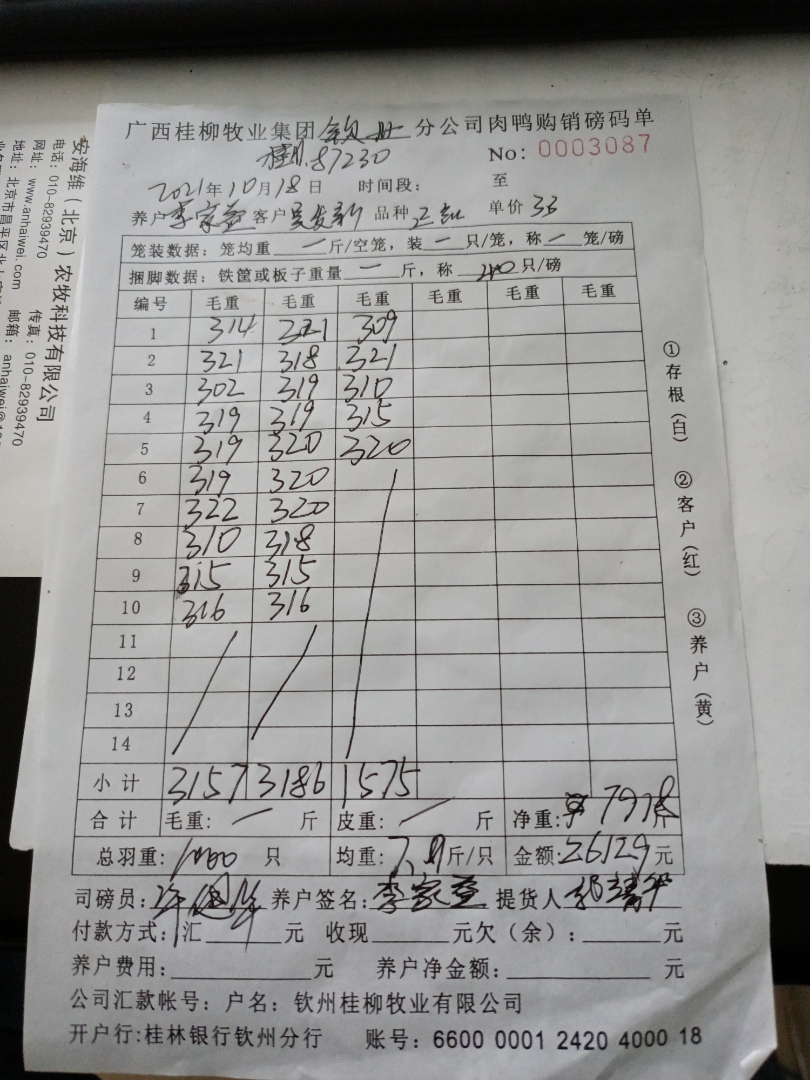 广西桂柳牧业集团钦州分公司肉鸭购销磅码单
87230
No: 0003087
2021年10月18日 时间段： 至
养户李家益 客户吴发新 品种正红 单价33
笼装数据：笼均重 一 斤/空笼，装 一 只/笼，称 一 笼/磅
捆脚数据：铁筐或板子重量 一 斤，称 40 只/磅
编号 毛重 毛重 毛重 毛重 毛重 毛重
1 314 321 309
2 321 318 321
3 302 319 310
4 319 319 315
5 319 320 320
6 319 320
7 322 320
8 310 318
9 315 315
10 316 316
11
12
13
14
小计 3157 3186 1575
合计 毛重： 一 斤 皮重： 一 斤 净重： 7918 斤
总羽重：1000 只 均重：7.9斤/只 金额：26129元
司磅员： 养户签名：李家益 提货人
付款方式：汇 元 收现 元欠（余）： 元
养户费用： 元 养户净金额： 元
公司汇款帐号：户名：钦州桂柳牧业有限公司
开户行：桂林银行钦州分行 账号：6600 0001 2420 4000 18
①存根（白） ②客户（红） ③养户（黄）
安海维（北京）农牧科技有限公司
电话：010-82939470 传真：010-82939470
网址：www.anhaiwei.com 邮箱：anhaiwei@
地址：北京市昌平区